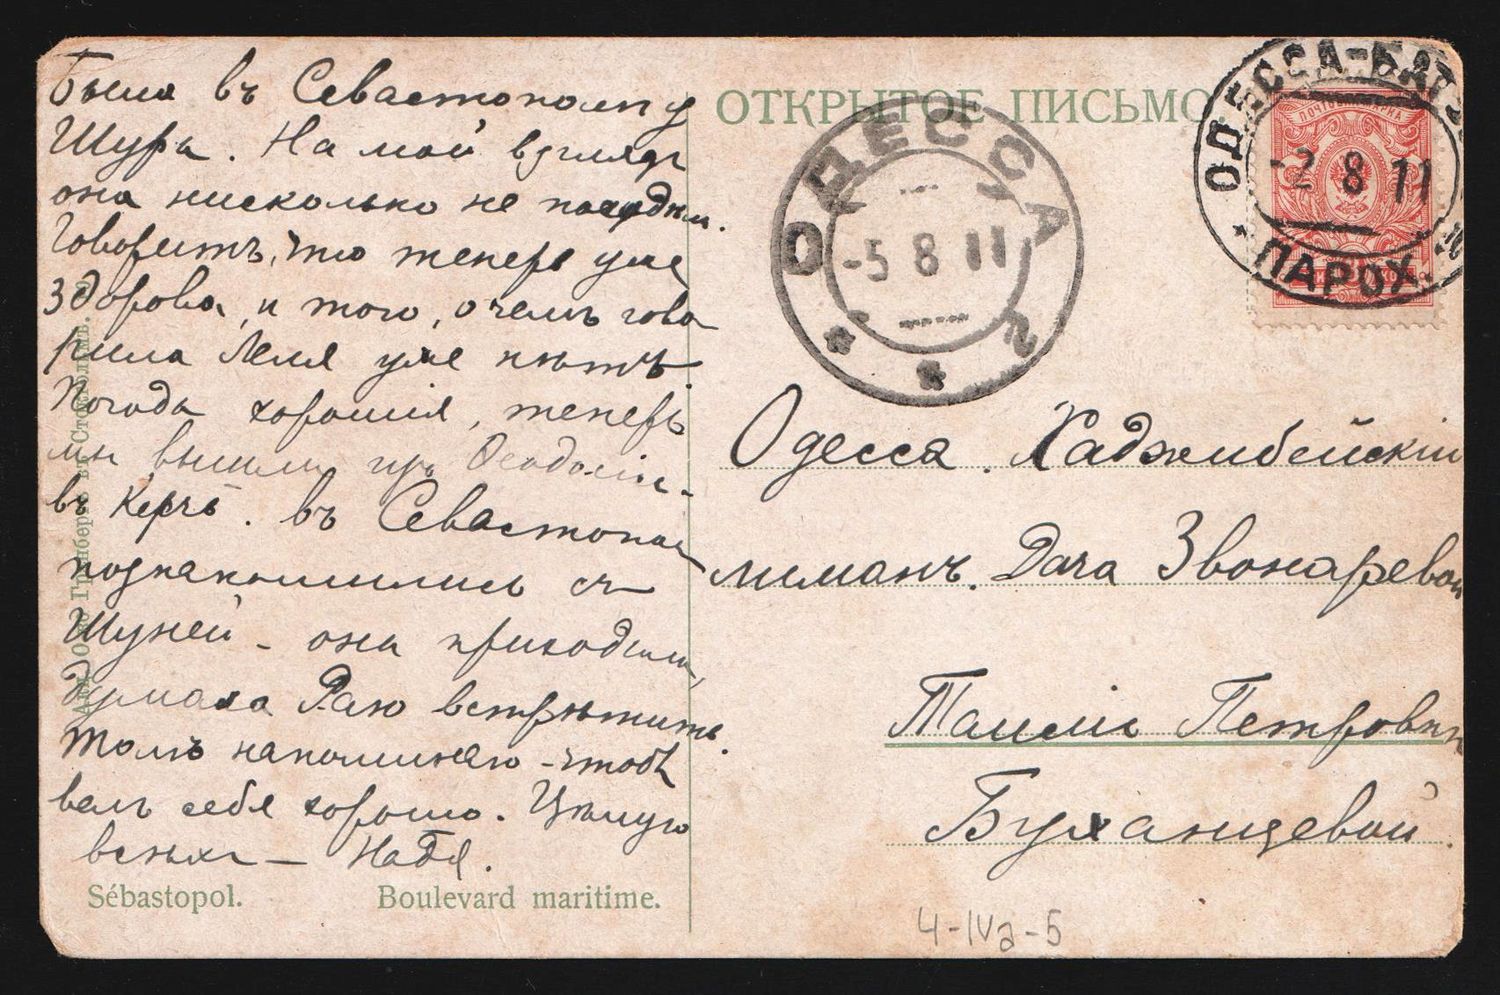 Была въ Севастополѣ у
Шуры. На мой взглядъ
она нисколько не похудѣла.
Говоритъ, что теперь уже
здорова, и того, о чемъ гово
рила Леля уже нѣтъ.
Погода хорошая, теперь
мы вышли изъ Ѳеодосіи
въ Керчь. Въ Севастополѣ
познакомились съ
Шуней - она приходила,
думала Раю встрѣтить.
Толѣ напоминаю - чтобъ
велъ себя хорошо. Цѣлую
всѣхъ - Надя.
Sébastopol. Boulevard maritime.
Акц. О-во Гранбергъ въ Стокгольмѣ.
ОТКРЫТОЕ ПИСЬМО.
ОДЕССА-БАТУМ
-2 8 11
ПАРОХ.
ОДЕССА
-5 8 11
2
Одесса. Хаджибейскій
лиманъ. Дача Звонаревой
Таисіи Петровнѣ
Буханцевой.
4-IVa-5